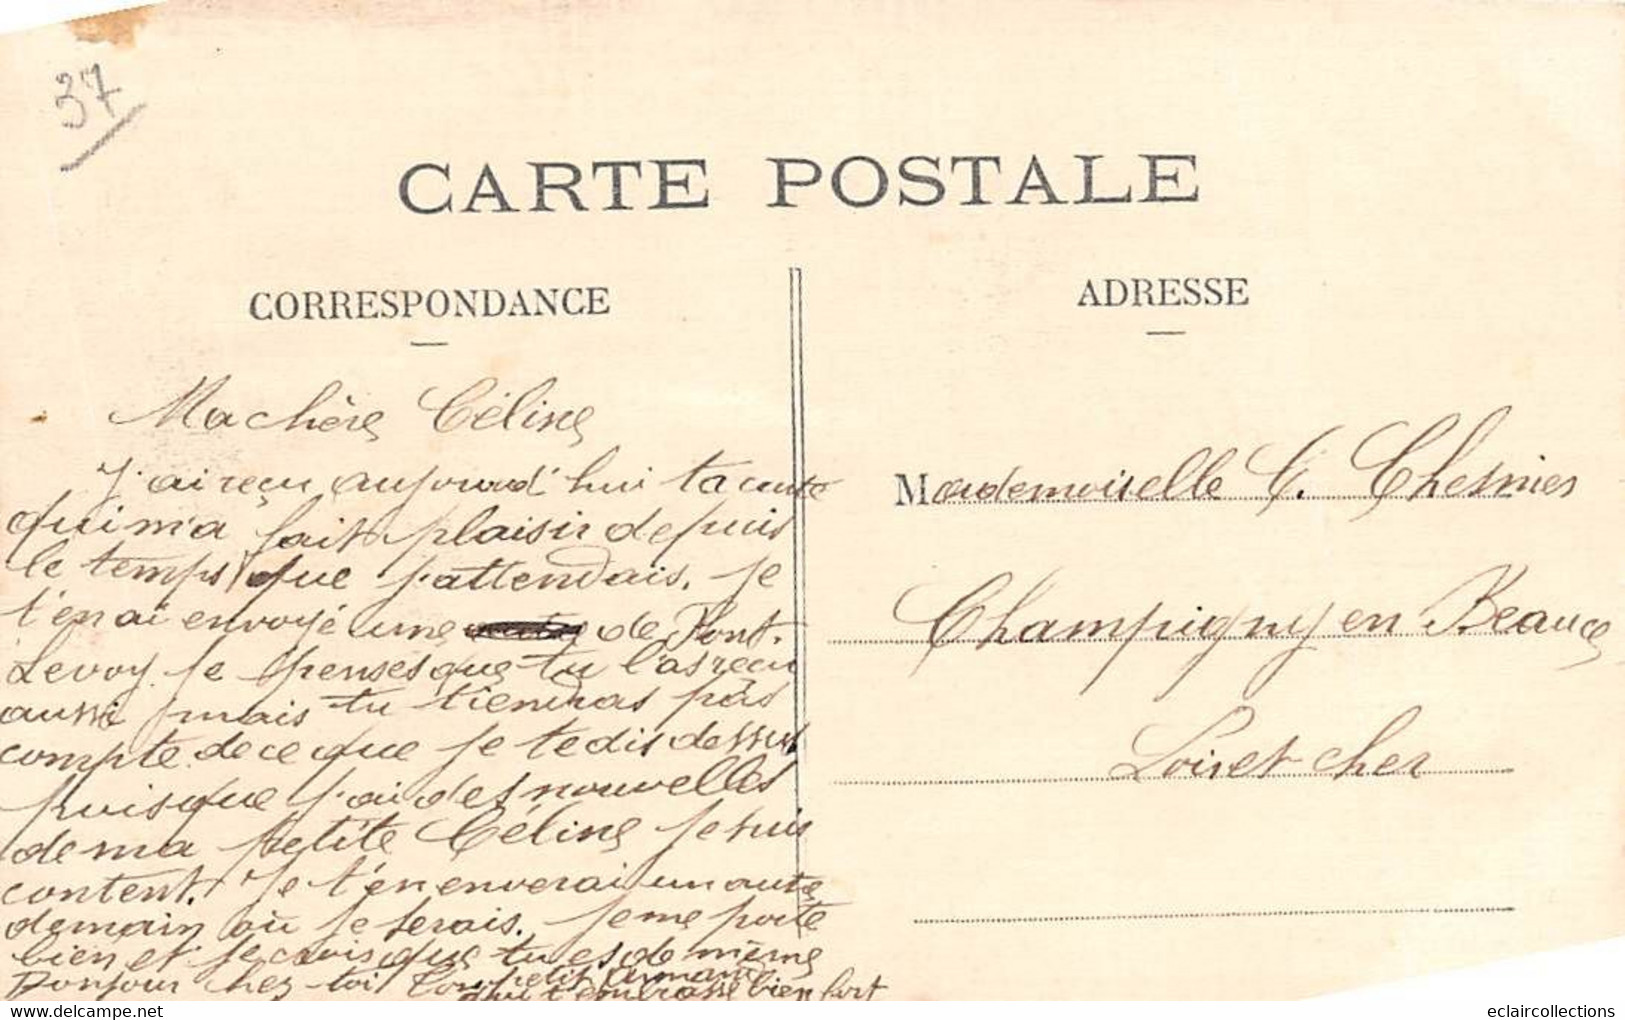 37
CARTE POSTALE
CORRESPONDANCE
Ma chère Céline
J'ai reçu aujourd'hui ta carte
qui m'a fait plaisir depuis
le temps que j'attendais. je
t'en ai envoyé une de Pont.
Levoy je penses que tu l'as reçu
aussi mais tu tiendras pas
compte de ce que je te dis dessus
puisque j'ai des nouvelles
de ma petite Céline je suis
content. Je t'en enverai un autre
demain où je serais. je me porte
bien et je crois que tu es de même
Bonjour chez toi Ton petit Armand
qui t'embrasse bien fort
ADRESSE
Mademoiselle C. Chesnies
Champigny en Beauce
Loir et cher
eclaircollections